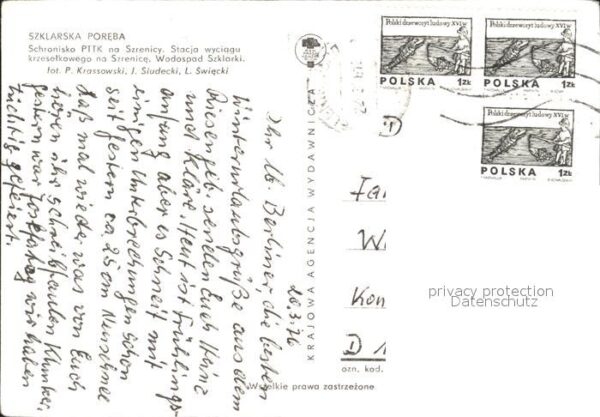 SZKLARSKA PORĘBA
Schronisko PTTK na Szrenicy. Stacja wyciągu
krzesełkowego na Szrenicę, Wodospad Szklarki.
fot. P. Krassowski, J. Siudecki, L. Święcki
Polski drzeworyt ludowy XVI w.
POLSKA 1 ZŁ
Polski drzeworyt ludowy XVI w.
POLSKA 1 ZŁ
Polski drzeworyt ludowy XVI w.
POLSKA 1 ZŁ
KRAJOWA AGENCJA WYDAWNICZA
26.3.76
Ihr lb Berliner, die besten
Winterurlaubsgrüße aus dem
Riesengeb senden Euch Heinz
und Kläre. Heut ist Frühlings-
anfang aber es schneit mit
einigen Unterbrechungen schon
seit gestern ca. 25 cm Neuschnee
Daß mal wieder was von Euch
hören ihr schreibfaulen Klunker,
gestern war wir haben
tüchtig gefeiert.
D
Fa
W
Kon
D 1
ozn. kod.
Wszelkie prawa zastrzeżone
privacy protection
Datenschutz